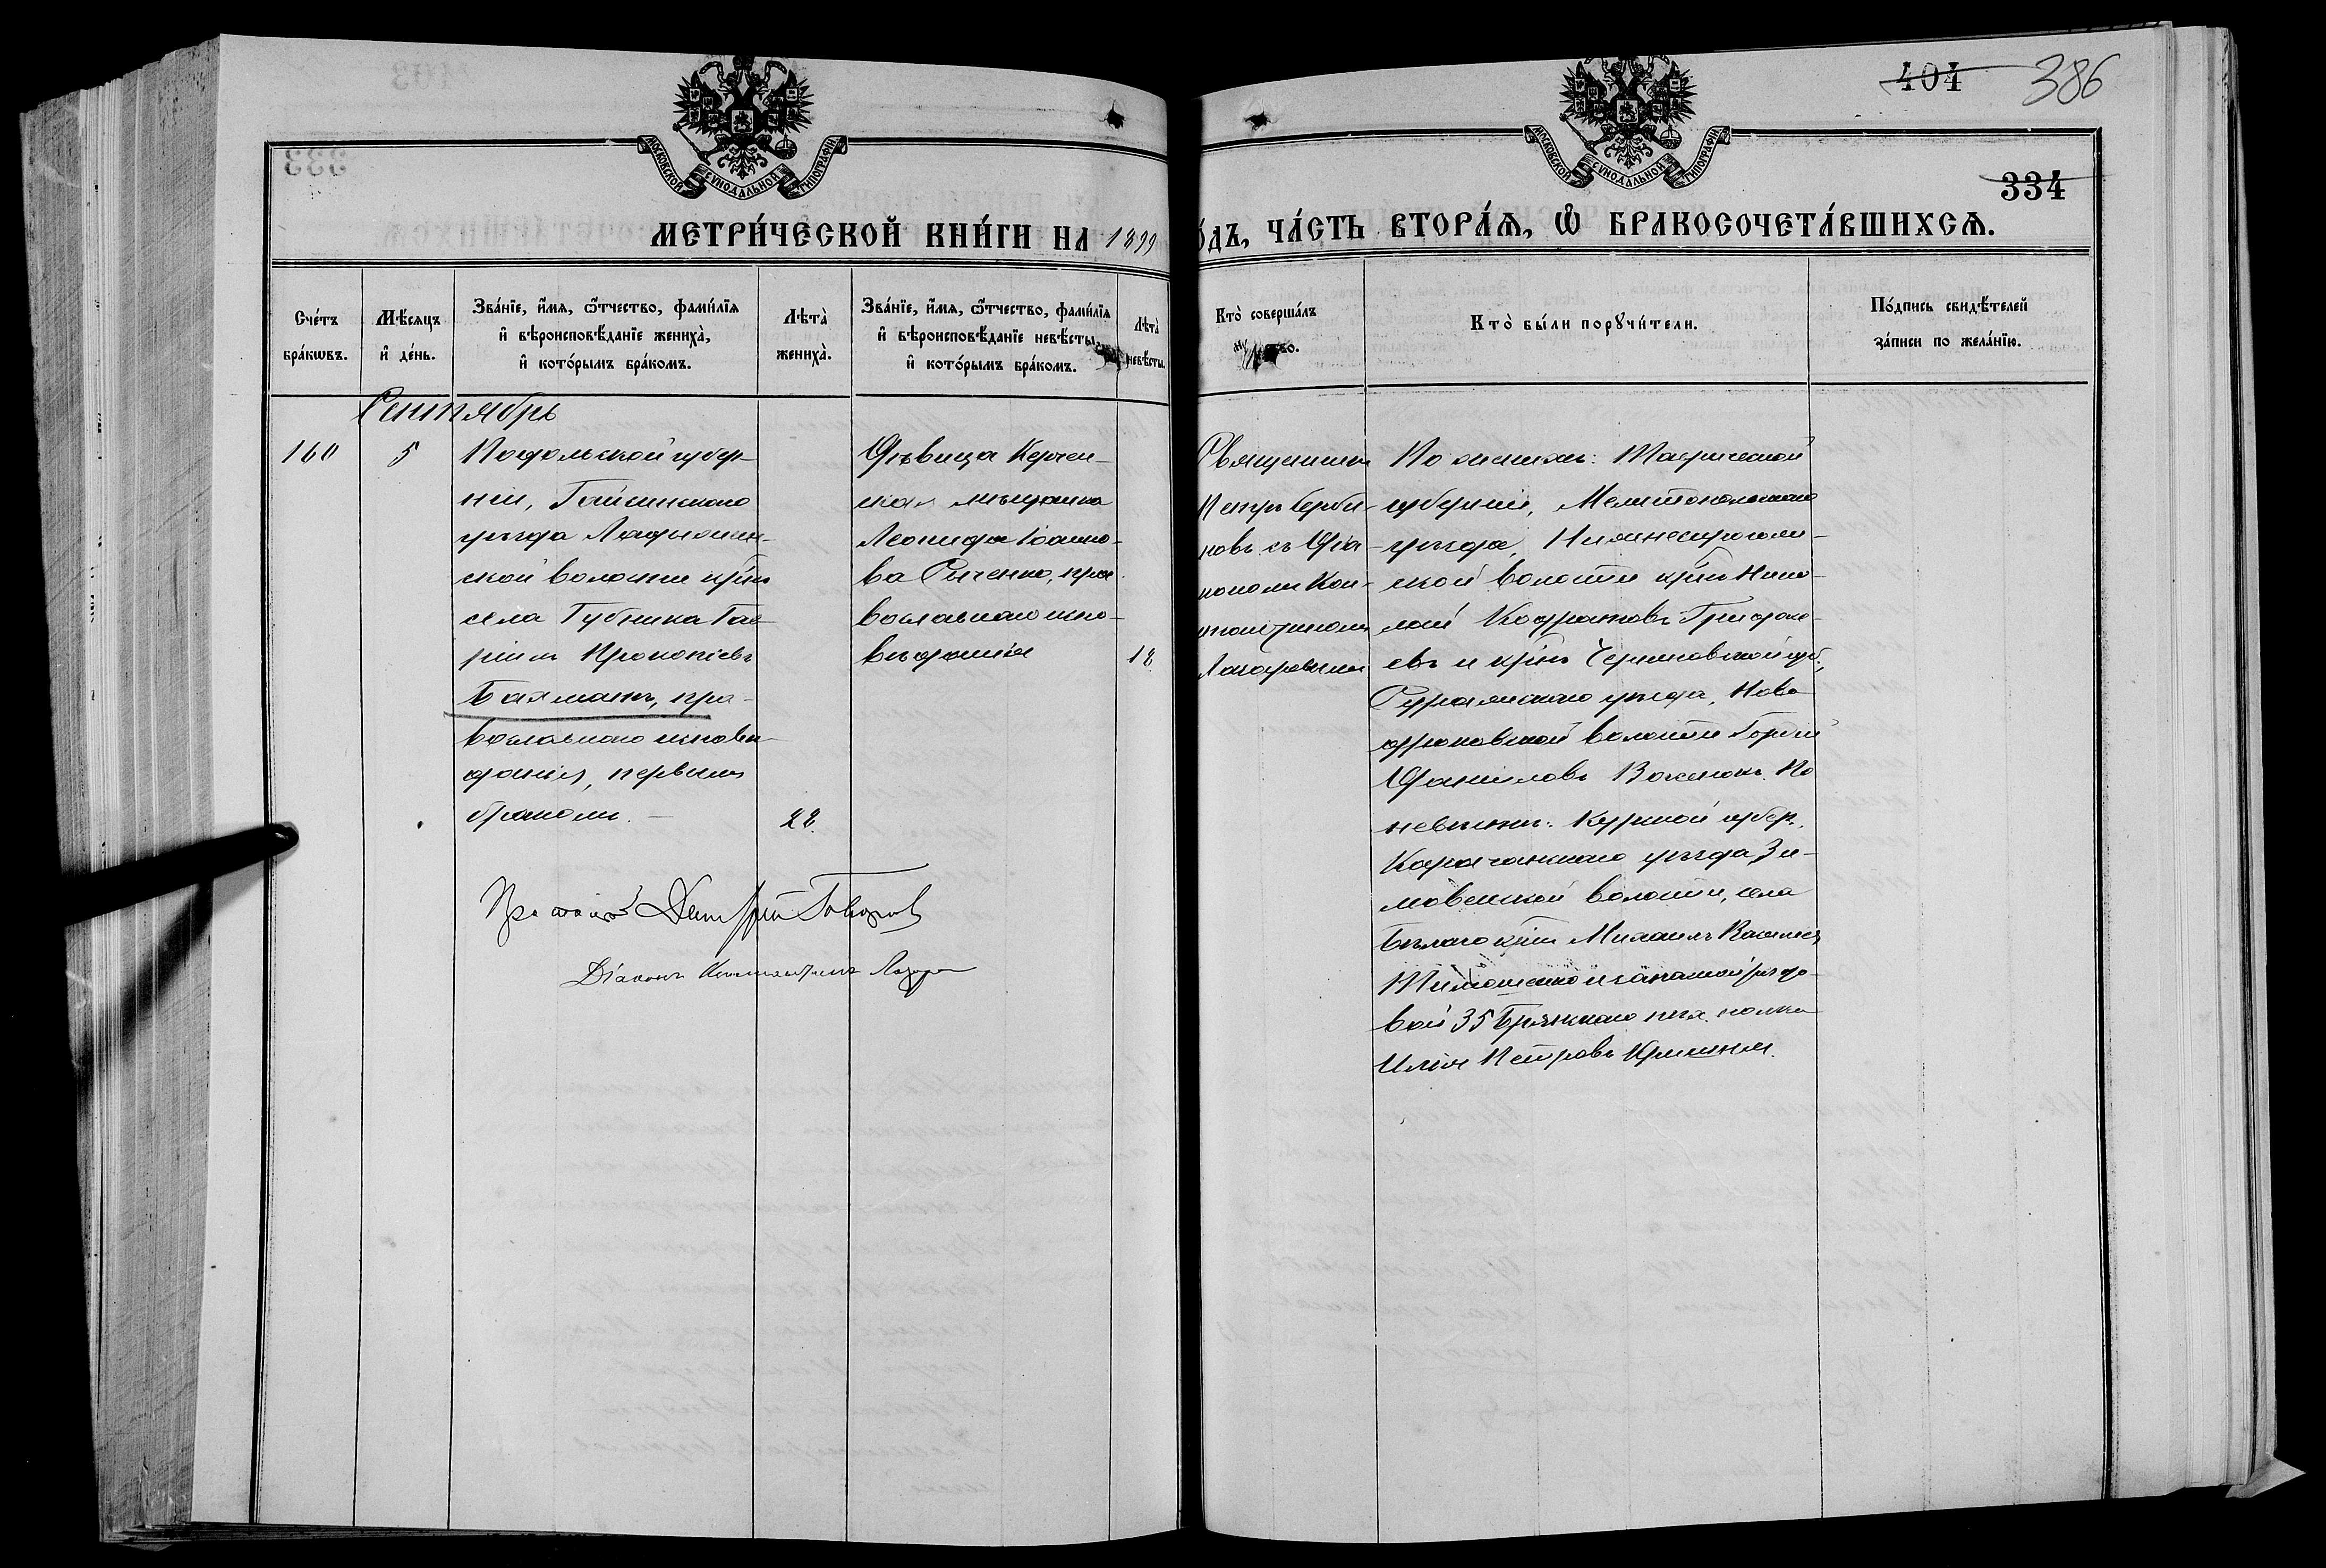 404 386
334
МОСКОВСКОЙ СѴНОДАЛЬНОЙ ТИПОГРАФІИ
МОСКОВСКОЙ СѴНОДАЛЬНОЙ ТИПОГРАФІИ
МЕТРИ́ЧЕСКОЙ КНИ́ГИ НА 1899
О́ДЪ, ЧА́СТЬ ВТОРА́Ѧ, Ѡ БРАКОСОЧЕТА́ВШИХСѦ.
Сче́тъ бра́кѡвъ.
Мѣ́сяцъ и де́нь.
Зва́нїе, и́мя, ѻ́тчество, фами́лїя и вѣроисповѣ́данїе жениха̀, и кото́рымъ бра́комъ.
Лѣта̀ жениха̀.
Зва́нїе, и́мя, ѻ́тчество, фами́лїя и вѣроисповѣ́данїе невѣ́сты, и кото́рымъ бра́комъ.
Лѣта̀ невѣ́сты.
Кто̀ соверша́лъ
Кто̀ бы́ли порꙋчи́тели.
По́дпись свидѣ́телей за́писи по жела́нїю.
Сентябрь
160
5
Подольской губер-
ніи, Гайсинскаго
уѣзда Ладыжин-
ской волости крнъ
села Губника Гав-
ріилъ Прокопіевъ
Бахманъ, пра-
вославнаго исповѣ-
данія, первымъ
бракомъ. —
22.
Дѣвица Керчен-
ская мѣщанка
Леонида Іоанно-
ва Сиченко, пра-
вославнаго испо-
вѣданія
18
Священникъ
Петръ Серби-
новъ съ Діа-
кономъ Кон-
стантиномъ
Лазаревымъ
По женихѣ: Таврической
губерніи, Мелитопольскаго
уѣзда, Нижнесѣрогоз-
ской волости крнъ Нико-
лай Кодратовъ
евъ и крнъ Черниговской губ.,
Суражскаго уѣзда, Ново-
дроковской волости Гордій
Даниловъ По
невѣстѣ: Курской губер.
Корочанскаго уѣзда, Зи-
мовенской волости, села
Бѣлаго крнъ Михаилъ Васильевъ
Тимошенко и запасной рядо-
вой 35 Брянскаго пѣх. полка
Илія Петровъ
Протоіерей Димитрій
Діаконъ Константинъ Лазарев